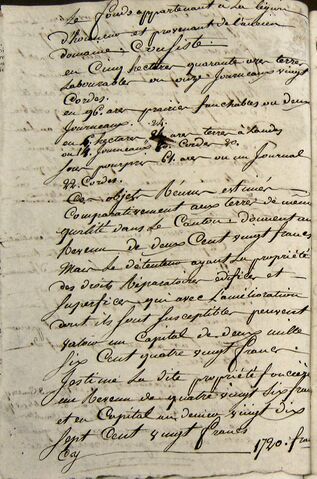 Le fonds appartenant a La Legion
d'honneur et provenant de l'ancien
domaine : Consiste.
en Cinq hectares quarante ares terres
Labourables ou onze Journeaux vingt
Cordes.
en 96. ares prairie fauchables ou deux
Journeaux.
en hectares ares terre a Landes
ou 14. journeaux Cordes
61. ares ou un Journal
22. Cordes.
Ces objets Reunis estimés
Comparativement aux terres de meme
qualité dans Le Canton donnent un
Revenu de deux Cent vingt francs
Mais Le détenteur ayant La propriété
des droits Reparatoires edifices et
Superfices qui avec l'amélioration
dont ils sont Susceptibles peuvent
valoir un Capital de deux mille
Six Cent quatre vingt francs.
Jestime La dite propriété foncière
un Revenu de quatre vingt Six francs
et en Capital au denier vingt dix
Sept Cent vingt francs
Cy 1720. fran